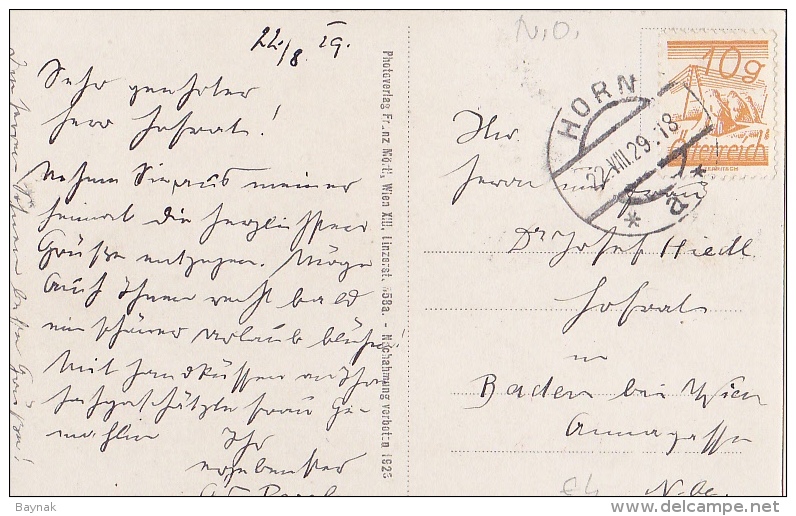 22./8. 29.
Sehr geehrter
Herr Hofrat!
Nehmen Sie aus meiner
Heimat die herzlichsten
Grüße entgegen. Möge
auch Ihnen recht bald
ein schöner Urlaub blühen!
Mit Handküssen an Ihre
hochgeschätzte Frau Ge-
mahlin Ihr
ergebenster
Photoverlag Franz Mörtl, Wien XIII, Linzerst. 458a. - Nachahmung verboten 1928
N.Ö.
10g
Österreich
HORN
22.VIII.29.18
* a *
Herrn und Frau
Dr Josef Hiedl
Hofrat
in
Baden bei Wien
Annagasse
N.Oe.
Baynak
www.delcampe.net